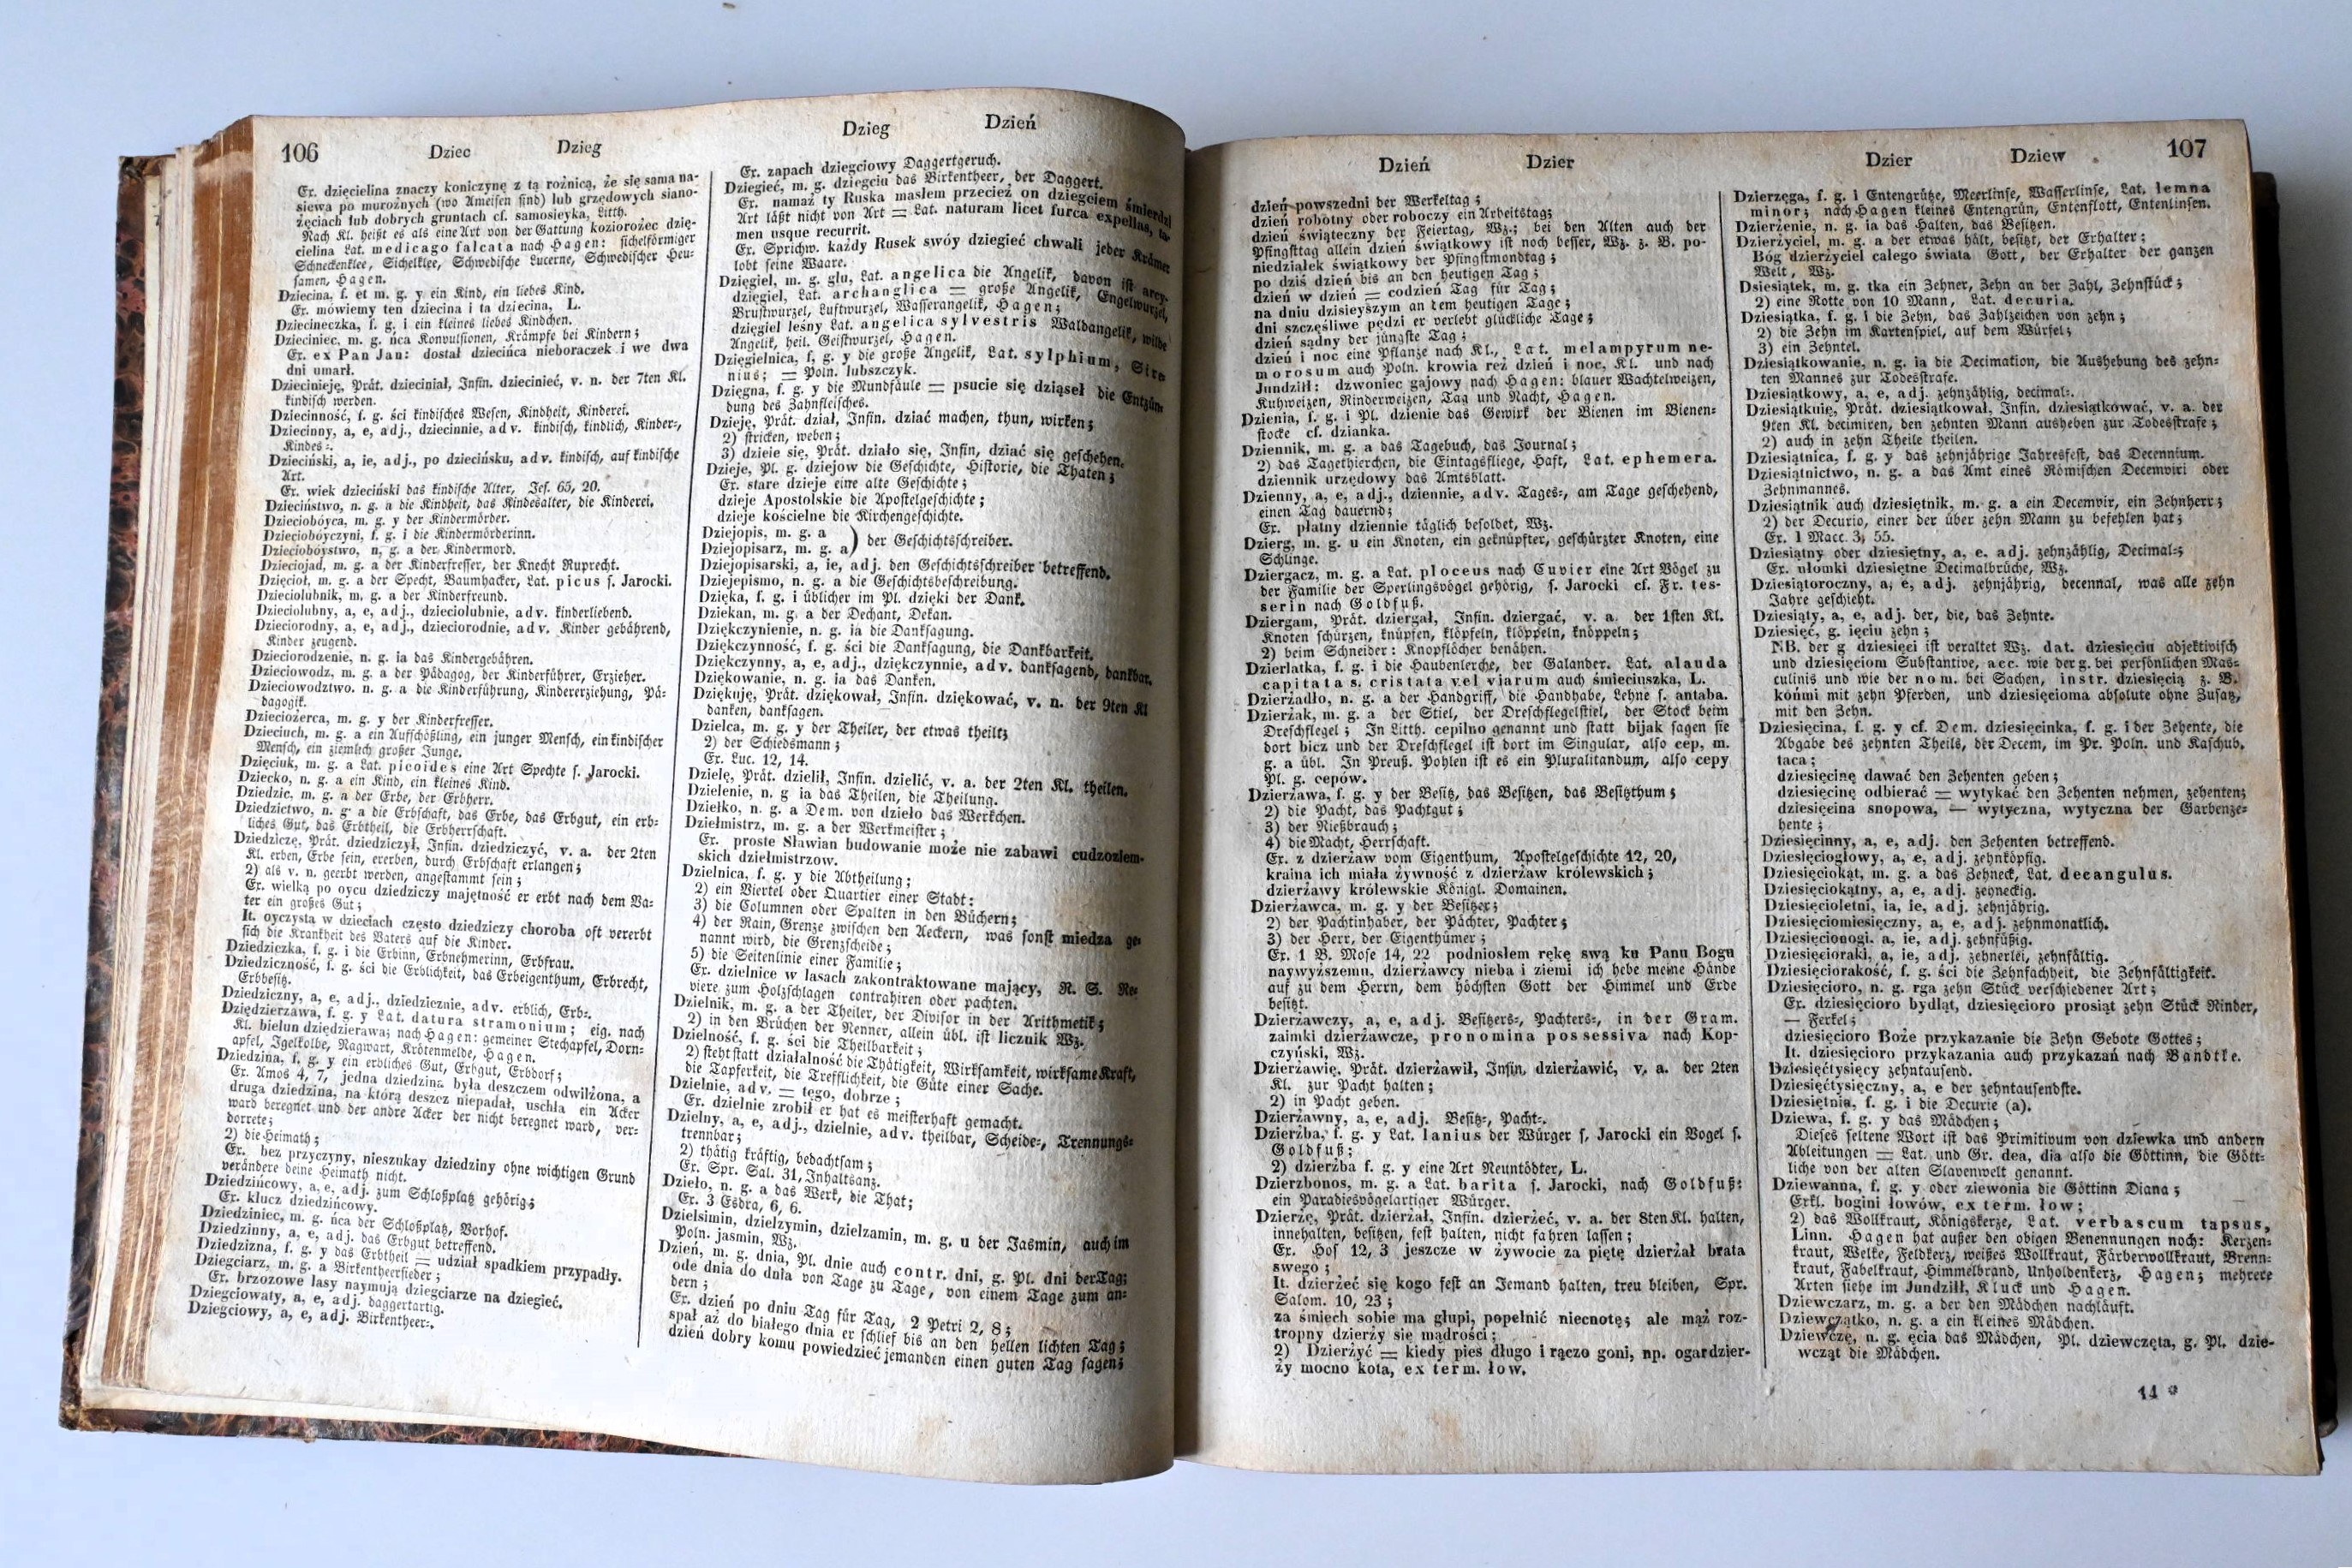 106
Dziec
Dzieg
Ex. dzięcielina znaczy koniczynę z tą rożnicą, że się sama na-
siewa po murożnych (wo Ameisen sind) lub grzędowych siano-
żęciach lub dobrych gruntach cf. samosieyka, Litth.
Nach Kl. heißt es als eine Art von der Gattung koziorożec dzię-
cielina Lat. medicago falcata nach Hagen: sichelförmiger
Schneckenklee, Sichelklee, Schwedische Lucerne, Schwedischer Heu-
samen, Hagen.
Dziecina, f. et m. g. y ein Kind, ein liebes Kind.
Ex. mówiemy ten dziecina i ta dziecina, L.
Dziecineczka, f. g. i ein kleines liebes Kindchen.
Dzieciniec, m. g. ńca Konvulsionen, Krämpfe bei Kindern;
Ex. ex Pan Jan: dostał dziecińca nieboraczek i we dwa
dni umarł.
Dziecinieję, Prät. dzieciniał, Infin. dziecinieć, v. n. der 7ten Kl.
kindisch werden.
Dziecinność, f. g. ści kindisches Wesen, Kindheit, Kinderei.
Dziecinny, a, e, adj., dziecinnie, adv. kindisch, kindlich, Kinder-,
Kindes-.
Dzieciński, a, ie, adj., po dziecińsku, adv. kindisch, auf kindische
Art.
Ex. wiek dzieciński das kindische Alter, Jes. 65, 20.
Dzieciństwo, n. g. a die Kindheit, das Kindesalter, die Kinderei.
Dzieciobóyca, m. g. y der Kindermörder.
Dzieciobóyczyni, f. g. i die Kindermörderinn.
Dzieciobóystwo, n. g. a der Kindermord.
Dzieciojad, m. g. a der Kinderfresser, der Knecht Ruprecht.
Dzięcioł, m. g. a der Specht, Baumhacker, Lat. picus s. Jarocki.
Dzieciolubnik, m. g. a der Kinderfreund.
Dzieciolubny, a, e, adj., dzieciolubnie, adv. kinderliebend.
Dzieciorodny, a, e, adj., dzieciorodnie, adv. Kinder gebährend,
Kinder zeugend.
Dzieciorodzenie, n. g. ia das Kindergebähren.
Dzieciowodz, m. g. a der Pädagog, der Kinderführer, Erzieher.
Dzieciowodztwo. n. g. a die Kinderführung, Kindererziehung, Pä-
dagogik.
Dzieciożerca, m. g. y der Kinderfresser.
Dzieciuch, m. g. a ein Aufschößling, ein junger Mensch, ein kindischer
Mensch, ein ziemlich großer Junge.
Dzięciuk, m. g. a Lat. picoides eine Art Spechte s. Jarocki.
Dziecko, n. g. a ein Kind, ein kleines Kind.
Dziedzic, m. g. a der Erbe, der Erbherr.
Dziedzictwo, n. g. a die Erbschaft, das Erbe, das Erbgut, ein erb-
liches Gut, das Erbtheil, die Erbherrschaft.
Dziedziczę, Prät. dziedziczył, Infin. dziedziczyć, v. a. der 2ten
Kl. erben, Erbe sein, ererben, durch Erbschaft erlangen;
2) als v. n. geerbt werden, angestammt sein;
Ex. wielką po oycu dziedziczy majętność er erbt nach dem Va-
ter ein großes Gut;
It. oyczysta w dzieciach często dziedziczy choroba oft vererbt
sich die Krankheit des Vaters auf die Kinder.
Dziedziczka, f. g. i die Erbinn, Erbnehmerinn, Erbfrau.
Dziedziczność, f. g. ści die Erblichkeit, das Erbeigenthum, Erbrecht,
Erbbesitz.
Dziedziczny, a, e, adj., dziedzicznie, adv. erblich, Erb-.
Dzię­dzierzawa, f. g. y Lat. datura stramonium; eig. nach
Kl. bielun dziędzierawa; nach Hagen: gemeiner Stechapfel, Dorn-
apfel, Igelkolbe, Ragwart, Krötenmelde, Hagen.
Dziedzina, f. g. y ein erbliches Gut, Erbgut, Erbdorf;
Ex. Amos 4, 7, jedna dziedzina była deszczem odwilżona, a
druga dziedzina, na którą deszcz niepadał, uschła ein Acker
ward beregnet und der andre Acker der nicht beregnet ward, ver-
dorrete;
2) die Heimath;
Ex. bez przyczyny, nieszukay dziedziny ohne wichtigen Grund
verändere deine Heimath nicht.
Dziedzińcowy, a, e, adj. zum Schloßplatz gehörig;
Ex. klucz dziedzińcowy.
Dziedziniec, m. g. ńca der Schloßplatz, Vorhof.
Dziedzinny, a, e, adj. das Erbgut betreffend.
Dziedzizna, f. g. y das Erbtheil = udział spadkiem przypadły.
Dziegciarz, m. g. a Birkentheersieder;
Ex. brzozowe lasy naymują dziegciarze na dziegieć.
Dziegciowaty, a, e, adj. daggertartig.
Dziegciowy, a, e, adj. Birkentheer-.
Dzieg
Dzień
Ex. zapach dziegciowy Daggertgeruch.
Dziegieć, m. g. dziegciu das Birkentheer, der Daggert.
Ex. namaż ty Ruska masłem przecież on dziegciem śmierdzi
Art läßt nicht von Art = Lat. naturam licet furca expellas, ta-
men usque recurrit.
Ex. Sprichw. każdy Rusek swóy dziegieć chwali jeder Krämer
lobt seine Waare.
Dzięgiel, m. g. glu, Lat. angelica die Angelik, davon ist arcy-
dzięgiel, Lat. archanglica = große Angelik, Engelwurzel,
Brustwurzel, Luftwurzel, Wasserangelik, Hagen;
dzięgiel leśny Lat. angelica sylvestris Waldangelik, wilde
Angelik, heil. Geistwurzel, Hagen.
Dzięgielnica, f. g. y die große Angelik, Lat. sylphium, Sire
nius; = Poln. lubszczyk.
Dzięgna, f. g. y die Mundfäule = psucie się dziąseł die Entzün-
dung des Zahnfleisches.
Dzieję, Prät. dział, Infin. dziać machen, thun, wirken;
2) stricken, weben;
3) dzieie się, Prät. działo się, Infin, dziać się geschehen.
Dzieje, Pl. g. dziejow die Geschichte, Historie, die Thaten;
Ex. stare dzieje eine alte Geschichte;
dzieje Apostolskie die Apostelgeschichte;
dzieje kościelne die Kirchengeschichte.
Dziejopis, m. g. a
Dziejopisarz, m. g. a) der Geschichtschreiber.
Dziejopisarski, a, ie, adj. den Geschichtschreiber betreffend.
Dziejepismo, n. g. a die Geschichtsbeschreibung.
Dzięka, f. g. i üblicher im Pl. dzięki der Dank.
Dziekan, m. g. a der Dechant, Dekan.
Dziękczynienie, n. g. ia die Danksagung.
Dziękczynność, f. g. ści die Danksagung, die Dankbarkeit.
Dziękczynny, a, e, adj., dziękczynnie, adv. danksagend, dankbar.
Dziękowanie, n. g. ia das Danken.
Dziękuję, Prät. dziękował, Infin. dziękować, v. n. der 9ten Kl
danken, danksagen.
Dzielca, m. g. y der Theiler, der etwas theilt;
2) der Schiedsmann;
Ex. Luc. 12, 14.
Dzielę, Prät. dzielił, Infin. dzielić, v. a. der 2ten Kl. theilen.
Dzielenie, n. g ia das Theilen, die Theilung.
Dziełko, n. g. a Dem. von dzieło das Werkchen.
Dziełmistrz, m. g. a der Werkmeister;
Ex. proste Sławian budowanie może nie zabawi cudzoziem-
skich dziełmistrzow.
Dzielnica, f. g. y die Abtheilung;
2) ein Viertel oder Quartier einer Stadt:
3) die Columnen oder Spalten in den Büchern;
4) der Rain, Grenze zwischen den Aeckern, was sonst miedza ge-
nannt wird, die Grenzscheide;
5) die Seitenlinie einer Familie;
Ex. dzielnice w lasach zakontraktowane mający, R. S. Re-
viere zum Holzschlagen contrahiren oder pachten.
Dzielnik, m. g. a der Theiler, der Divisor in der Arithmetik;
2) in den Brüchen der Nenner, allein übl. ist licznik Wz.
Dzielność, f. g. ści die Theilbarkeit;
2) steht statt działalność die Thätigkeit, Wirksamkeit, wirksame Kraft,
die Tapferkeit, die Trefflichkeit, die Güte einer Sache.
Dzielnie, adv. = tęgo, dobrze;
Ex. dzielnie zrobił er hat es meisterhaft gemacht.
Dzielny, a, e, adj., dzielnie, adv. theilbar, Scheide-, Trennungs-
trennbar;
2) thätig kräftig, bedachtsam;
Ex. Spr. Sal. 31, Inhaltsanz.
Dzieło, n. g. a das Werk, die That;
Ex. 3 Esdra, 6, 6.
Dzielsimin, dzielzymin, dzielzamin, m. g. u der Jasmin, auch im
Poln. jasmin, Wz.
Dzień, m. g. dnia, Pl. dnie auch contr. dni, g. Pl. dni der Tag;
ode dnia do dnia von Tage zu Tage, von einem Tage zum an-
dern;
Ex. dzień po dniu Tag für Tag, 2 Petri 2, 8;
spał aż do białego dnia er schlief bis an den hellen lichten Tag;
dzień dobry komu powiedzieć jemanden einen guten Tag sagen;
Dzień
Dzier
dzień powszedni der Werkeltag;
dzień robotny oder roboczy ein Arbeitstag;
dzień świąteczny der Feiertag, Wz.; bei den Alten auch der
Pfingsttag allein dzień świątkowy ist noch besser, Wz. z. B. po-
niedziałek świątkowy der Pfingstmondtag;
po dziś dzień bis an den heutigen Tag;
dzień w dzień = codzień Tag für Tag;
na dniu dzisieyszym an dem heutigen Tage;
dni szczęśliwe pędzi er verlebt glückliche Tage;
dzień sądny der jüngste Tag;
dzień i noc eine Pflanze nach Kl., Lat. melampyrum ne-
morosum auch Poln. krowia reż dzień i noc, Kl. und nach
Jundziłł: dzwoniec gajowy nach Hagen: blauer Wachtelweizen,
Kuhweizen, Rinderweizen, Tag und Nacht, Hagen.
Dzienia, f. g. i Pl. dzienie das Gewirk der Bienen im Bienen-
stocke cf. dzianka.
Dziennik, m. g. a das Tagebuch, das Journal;
2) das Tagethierchen, die Eintagsfliege, Haft, Lat. ephemera.
dziennik urzędowy das Amtsblatt.
Dzienny, a, e, adj., dziennie, adv. Tages-, am Tage geschehend,
einen Tag dauernd;
Ex. płatny dziennie täglich besoldet, Wz.
Dzierg, m. g. u ein Knoten, ein geknüpfter, geschürzter Knoten, eine
Schlinge.
Dziergacz, m. g. a Lat. ploceus nach Cuvier eine Art Vögel zu
der Familie der Sperlingsvögel gehörig, s. Jarocki cf. Fr. tes-
serin nach Goldfuß.
Dziergam, Prät. dziergał, Infin. dziergać, v. a. der 1sten Kl.
Knoten schürzen, knüpfen, klöpfeln, klöppeln, knöppeln;
2) beim Schneider: Knopflöcher benähen.
Dzierlatka, f. g. i die Haubenlerche, der Galander. Lat. alauda
capitata s. cristata vel viarum auch śmieciuszka, L.
Dzierżadło, n. g. a der Handgriff, die Handhabe, Lehne s. antaba.
Dzierżak, m. g. a der Stiel, der Dreschflegelstiel, der Stock beim
Dreschflegel; In Litth. cepilno genannt und statt bijak sagen sie
dort bicz und der Dreschflegel ist dort im Singular, also cep, m.
g. a übl. In Preuß. Pohlen ist es ein Pluralitandum, also cepy
Pl. g. cepów.
Dzierżawa, f. g. y der Besitz, das Besitzen, das Besitzthum;
2) die Pacht, das Pachtgut;
3) der Nießbrauch;
4) die Macht, Herrschaft.
Ex. z dzierżaw vom Eigenthum, Apostelgeschichte 12, 20,
kraina ich miała żywność z dzierżaw królewskich;
dzierżawy królewskie Königl. Domainen.
Dzierżawca, m. g. y der Besitzer;
2) der Pachtinhaber, der Pächter, Pachter;
3) der Herr, der Eigenthümer;
Ex. 1 B. Mose 14, 22 podniosłem rękę swą ku Panu Bogu
naywyższemu, dzierżawcy nieba i ziemi ich hebe meine Hände
auf zu dem Herrn, dem höchsten Gott der Himmel und Erde
besitzt.
Dzierżawczy, a, e, adj. Besitzers-, Pachters-, in der Gram.
zaimki dzierżawcze, pronomina possessiva nach Kop-
czyński, Wz.
Dzierżawię, Prät. dzierżawił, Infin. dzierżawić, v. a. der 2ten
Kl. zur Pacht halten;
2) in Pacht geben.
Dzierżawny, a, e, adj. Besitz-, Pacht-.
Dzierżba, f. g. y Lat. lanius der Würger s. Jarocki ein Vogel s.
Goldfuß;
2) dzierżba f. g. y eine Art Neuntödter, L.
Dzierzbonos, m. g. a Lat. barita s. Jarocki, nach Goldfuß:
ein Paradiesvögelartiger Würger.
Dzierżę, Prät. dzierżał, Infin. dzierżeć, v. a. der 8ten Kl. halten,
innehalten, besitzen, fest halten, nicht fahren lassen;
Ex. Hos 12, 3 jeszcze w żywocie za piętę dzierżał brata
swego;
It. dzierżeć się kogo fest an Jemand halten, treu bleiben, Spr.
Salom. 10, 23;
za śmiech sobie ma głupi, popełnić niecnotę; ale mąż roz-
tropny dzierży się mądrości;
2) Dzierżyć = kiedy pies długo i rączo goni, np. ogar dzier-
ży mocno kota, ex term. łow.
Dzier
Dziew
107
Dzierzęga, f. g. i Entengrütze, Meerlinse, Wasserlinse, Lat. lemna
minor; nach Hagen kleines Entengrün, Entenflott, Entenlinsen.
Dzierżenie, n. g. ia das Halten, das Besitzen.
Dzierżyciel, m. g. a der etwas hält, besitzt, der Erhalter;
Bóg dzierżyciel całego świata Gott, der Erhalter der ganzen
Welt, Wz.
Dsiesiątek, m. g. tka ein Zehner, Zehn an der Zahl, Zehnstück;
2) eine Rotte von 10 Mann, Lat. decuria.
Dziesiątka, f. g. i die Zehn, das Zahlzeichen von zehn;
2) die Zehn im Kartenspiel, auf dem Würfel;
3) ein Zehntel.
Dziesiątkowanie, n. g. ia die Decimation, die Aushebung des zehn-
ten Mannes zur Todesstrafe.
Dziesiątkowy, a, e, adj. zehnzählig, decimal-.
Dziesiątkuię, Prät. dziesiątkował, Infin. dziesiątkować, v. a. der
9ten Kl. decimiren, den zehnten Mann ausheben zur Todesstrafe;
2) auch in zehn Theile theilen.
Dziesiątnica, f. g. y das zehnjährige Jahresfest, das Decennium.
Dziesiątnictwo, n. g. a das Amt eines Römischen Decemviri oder
Zehnmannes.
Dziesiątnik auch dziesiętnik, m. g. a ein Decemvir, ein Zehnherr;
2) der Decurio, einer der über zehn Mann zu befehlen hat;
Ex. 1 Macc. 3, 55.
Dziesiątny oder dziesiętny, a, e. adj. zehnzählig, Decimal-;
Ex. ułomki dziesiętne Decimalbrüche, Wz.
Dziesiątoroczny, a, e, adj. zehnjährig, decennal, was alle zehn
Jahre geschieht.
Dziesiąty, a, e, adj. der, die, das Zehnte.
Dziesięć, g. ięciu zehn;
NB. der g dziesięci ist veraltet Wz. dat. dziesięciu adjektivisch
und dziesięciom Substantive, acc. wie der g. bei persönlichen Mas-
culinis und wie der nom. bei Sachen, instr. dziesięcią z. B.
końmi mit zehn Pferden, und dziesięcioma absolute ohne Zusatz,
mit den Zehn.
Dziesięcina, f. g. y cf. Dem. dziesięcinka, f. g. i der Zehente, die
Abgabe des zehnten Theils, der Decem, im Pr. Poln. und Kaschub.
taca;
dziesięcinę dawać den Zehenten geben;
dziesięcinę odbierać = wytykać den Zehenten nehmen, zehenten;
dziesięcina snopowa, — wytyczna, wytyczna der Garbenze-
hente;
Dziesięcinny, a, e, adj. den Zehenten betreffend.
Dziesięciogłowy, a, e, adj. zehnköpfig.
Dziesięciokąt, m. g. a das Zehneck, Lat. decangulus.
Dziesięciokątny, a, e, adj. zehneckig.
Dziesięcioletni, ia, ie, adj. zehnjährig.
Dziesięciomiesięczny, a, e, adj. zehnmonatlich.
Dziesięcionogi. a, ie, adj. zehnfüßig.
Dziesięcioraki, a, ie, adj. zehnerlei, zehnfältig.
Dziesięciorakość, f. g. ści die Zehnfachheit, die Zehnfältigkeit.
Dziesięcioro, n. g. rga zehn Stück verschiedener Art;
Ex. dziesięcioro bydląt, dziesięcioro prosiąt zehn Stück Rinder,
— Ferkel;
dziesięcioro Boże przykazanie die Zehn Gebote Gottes;
It. dziesięcioro przykazania auch przykazań nach Bandtke.
Dziesięćtysięcy zehntausend.
Dziesięćtysięczny, a, e der zehntausendste.
Dziesiętnia, f. g. i die Decurie (a).
Dziewa, f. g. y das Mädchen;
Dieses seltene Wort ist das Primitivum von dziewka und andern
Ableitungen = Lat. und Gr. dea, dia also die Göttinn, die Gött-
liche von der alten Slavenwelt genannt.
Dziewanna, f. g. y oder ziewonia die Göttinn Diana;
Erkl. bogini łowów, ex term. łow;
2) das Wollkraut, Königskerze, Lat. verbascum tapsus,
Linn. Hagen hat außer den obigen Benennungen noch: Kerzen-
kraut, Welke, Feldkerz, weißes Wollkraut, Färberwollkraut, Brenn-
kraut, Fabelkraut, Himmelbrand, Unholdenkerz, Hagen; mehrere
Arten siehe im Jundziłł, Kluck und Hagen.
Dziewczarz, m. g. a der den Mädchen nachläuft.
Dziewczątko, n. g. a ein kleines Mädchen.
Dziewczę, n. g. ęcia das Mädchen, Pl. dziewczęta, g. Pl. dzie-
wcząt die Mädchen.
14 *